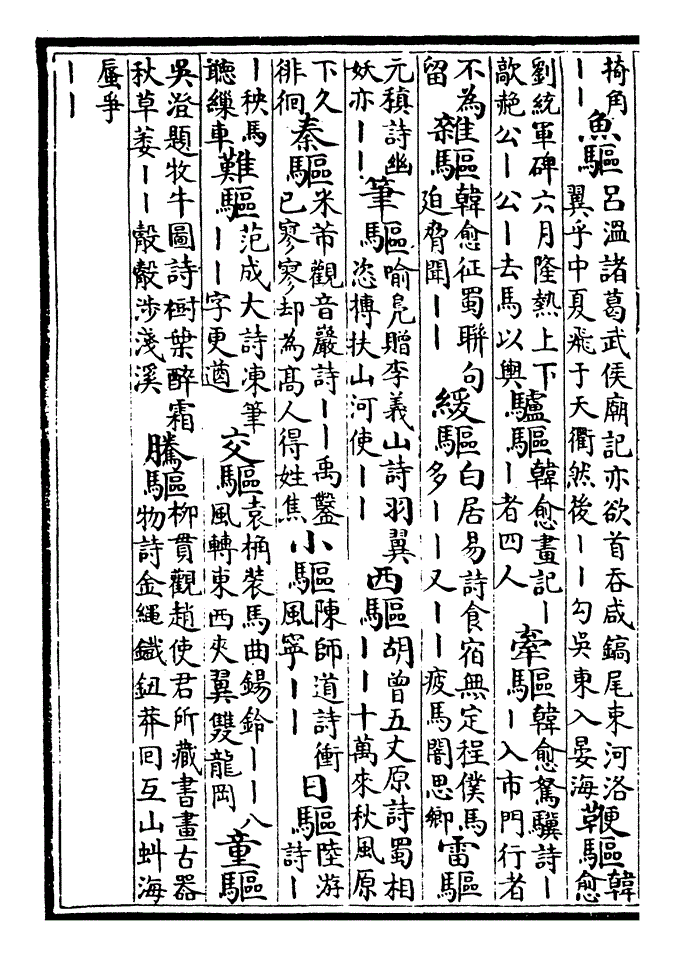 掎角｜｜魚驅呂溫諸葛武侯廟記亦欲首吞咸鎬尾束河洛翼乎中夏飛于天衢然後｜｜勾吳東入晏海鞭驅韓愈
劉統軍碑六月隆熱上下歊赩公｜公｜去馬以輿驢驅韓愈畫記｜｜者四人牽驅韓愈駑驥詩｜｜入市門行者
不為留雜驅韓愈征蜀聯句迫脅聞｜｜緩驅白居易詩食宿無定程僕馬多｜｜又｜｜疲馬闇思鄉雷驅
元稹詩幽妖亦｜｜筆驅喻鳧贈李義山詩羽翼恣摶扶山河使｜｜西驅胡曾五丈原詩蜀相｜｜十萬來秋風原
下久徘徊秦驅米芾觀音巖詩｜｜禹鑿已寥寥却為高人得姓焦小驅陳師道詩衝風寧｜｜日驅陸游詩｜
｜秧馬聽繅車難驅范成大詩凍筆｜｜字更遒交驅袁桷裝馬曲鍚鈴｜｜八風轉東西夾翼雙龍岡童驅
吳澄題牧牛圖詩樹葉醉霜秋草萎｜｜觳觳涉淺溪騰驅柳貫觀趙使君所藏書畫古器物詩金繩鐵鈕莽回互山蚪海
蜃爭｜｜